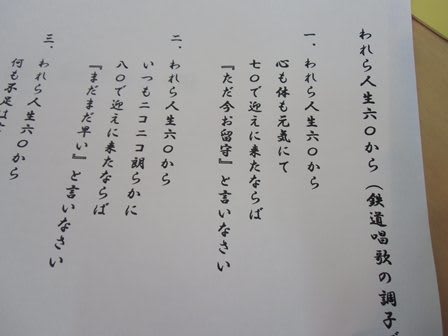 われら人生六〇から（鉄道唱歌の調子
一、われら人生六〇から
心も体も元気にて
七〇で迎えに来たならば
『ただ今お留守』と言いなさい
二、われら人生六〇から
いつもニコニコ朗らかに
八〇で迎えに来たならば
『まだまだ早い』と言いなさい
三、われら人生六〇から
何も不足は